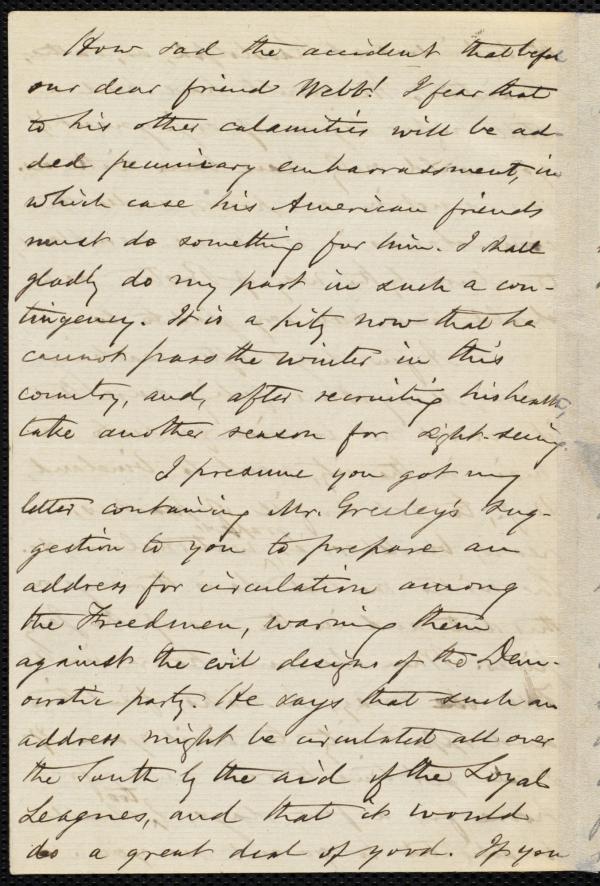 How sad the accident that befel
our dear friend Webb! I fear that
to his other calamities will be ad-
ded pecuniary embarrassment, in
which case his American friends
must do something for him. I shall
gladly do my part in such a con-
tingency. It is a pity now that he
cannot pass the winter in this
country, and, after recruiting his health,
take another season for sight-seeing.
I presume you got my
letter containing Mr. Greeley's sug-
gestion to you to prepare an
address for circulation among
the Freedmen, warning them
against the evil designs of the Dem-
ocratic party. He says that such an
address might be circulated all over
the South by the aid of the Loyal
Leagues, and that it would
do a great deal of good. If you